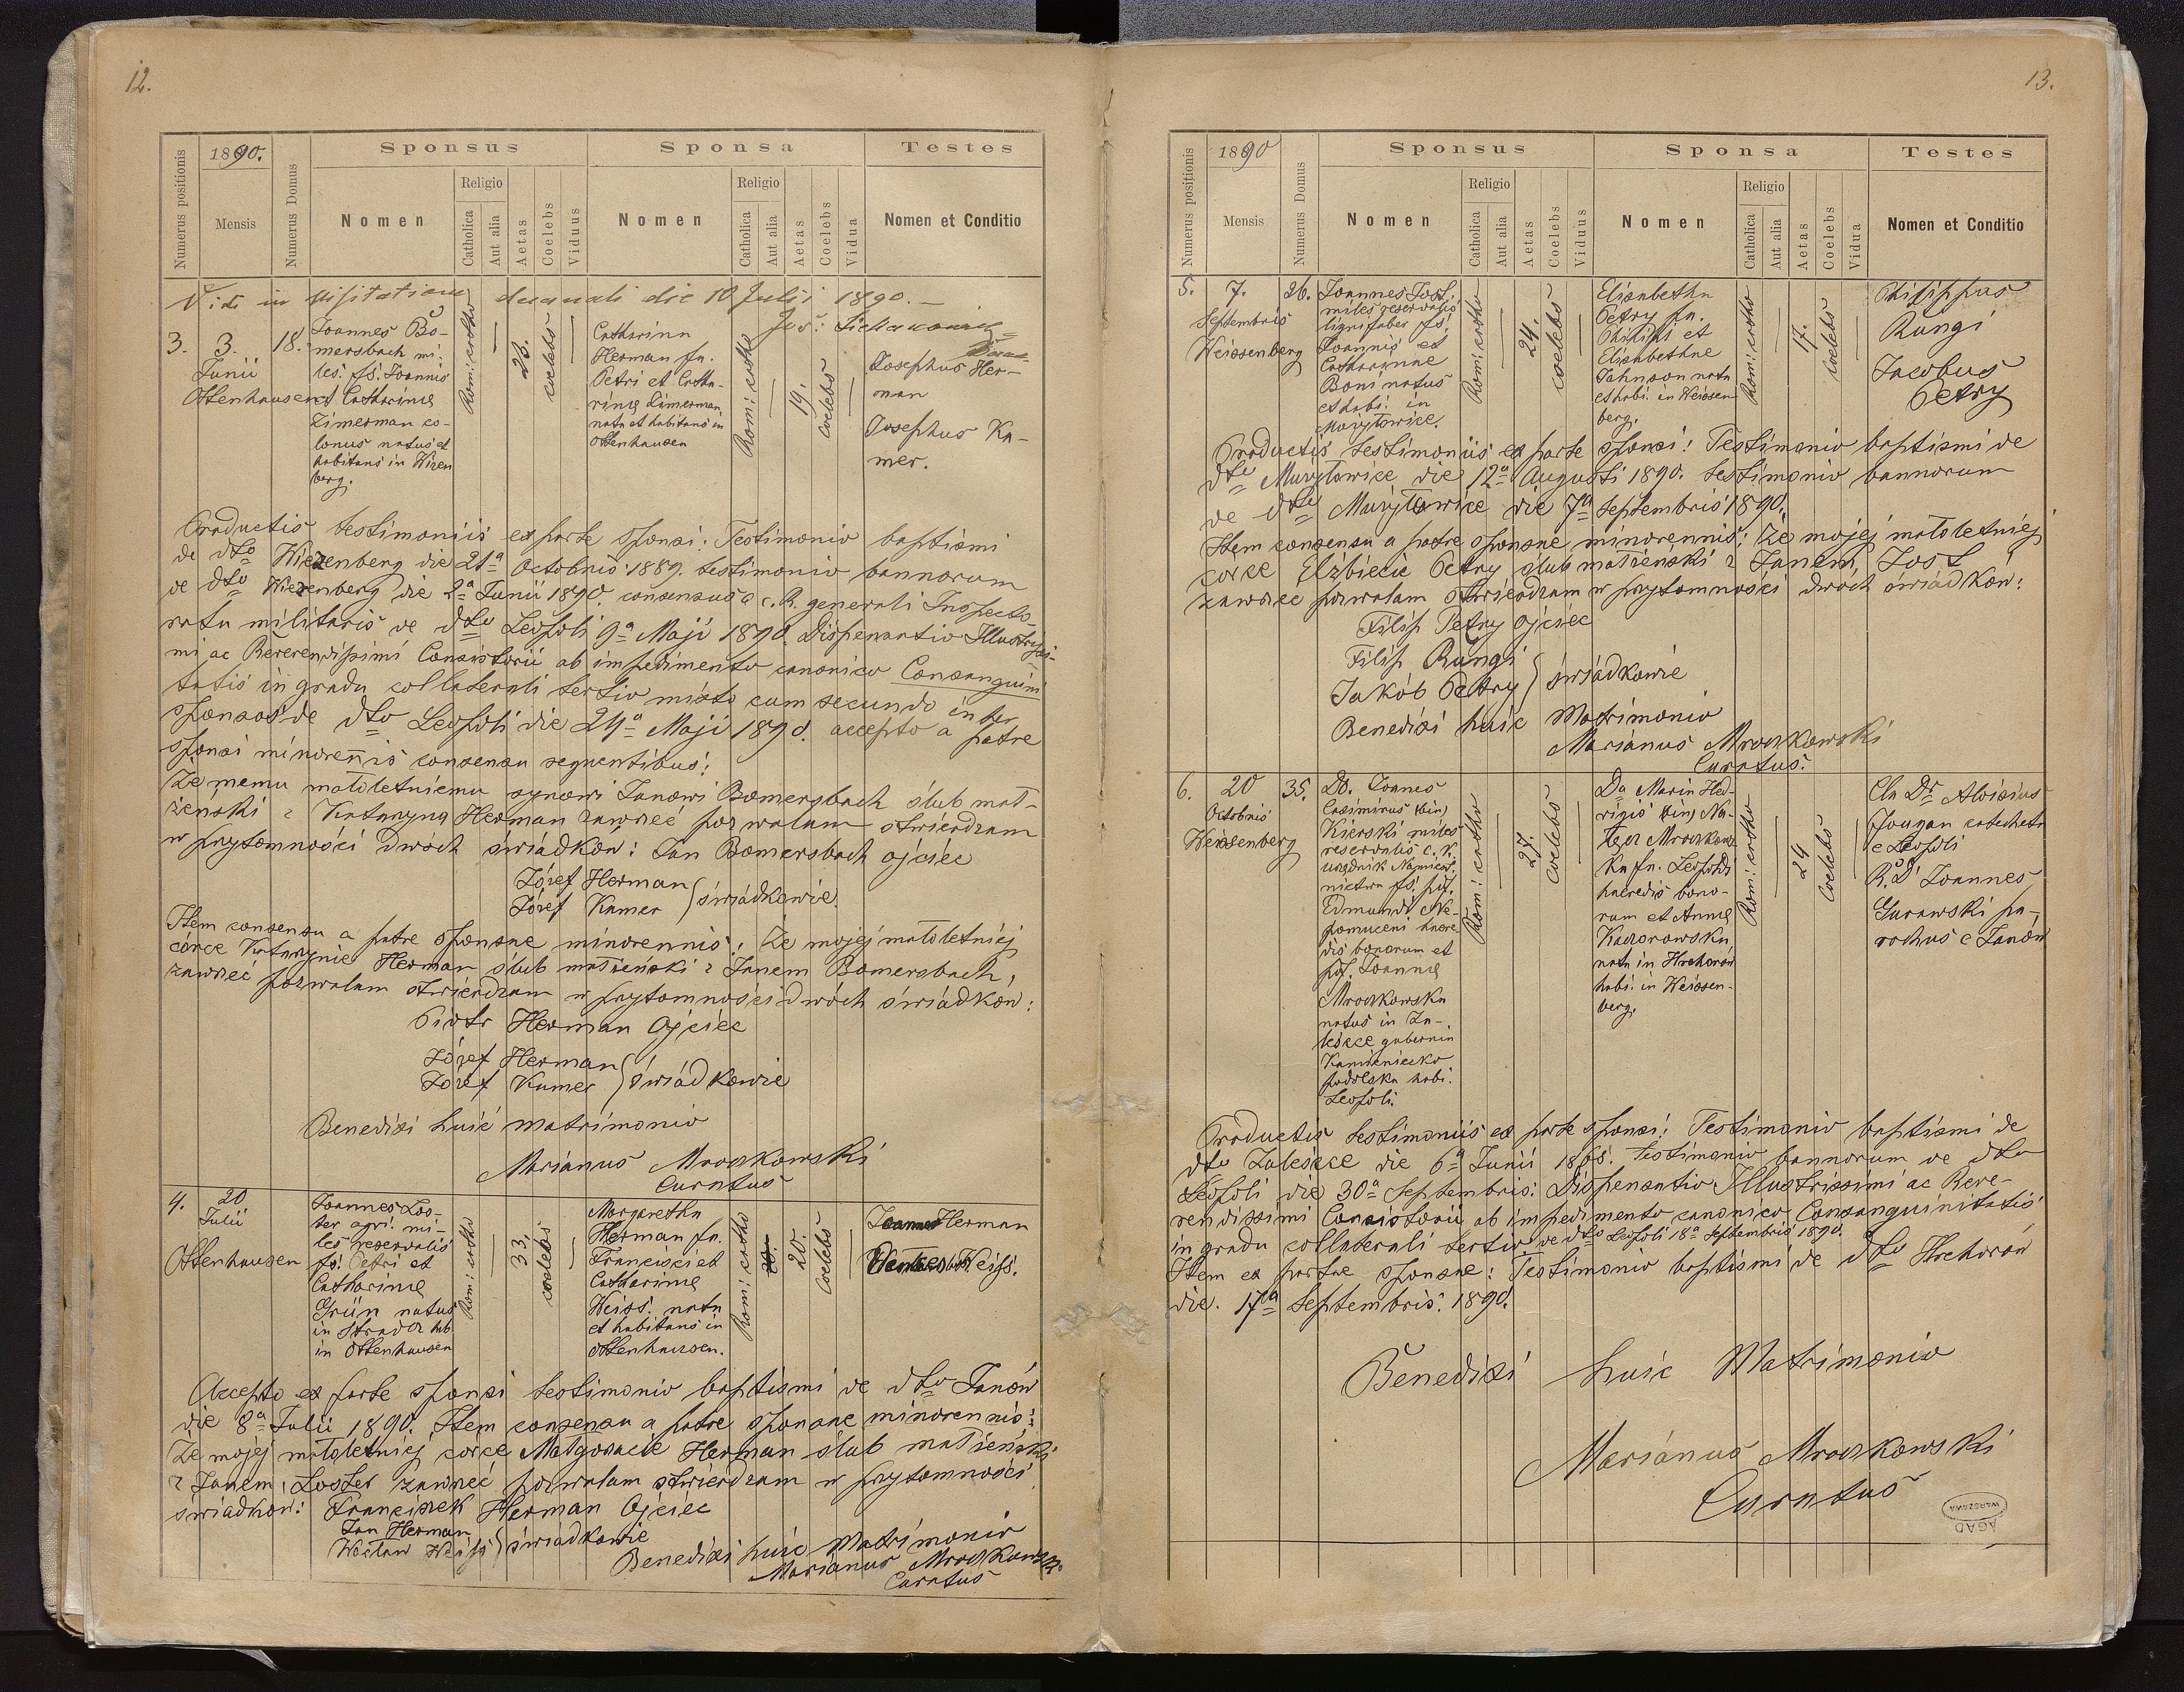 12.
1890.
Sponsus
Sponsa
Testes
Numerus positionis
Mensis
Numerus Domus
Nomen
Religio
Catholica
Aut alia
Aetas
Coelebs
Viduus
Nomen
Religio
Catholica
Aut alia
Aetas
Coelebs
Vidua
Nomen et Conditio
Vidi in visitatione decanali die 10 Julii 1890. —
3.
3.
Junii
Ottenhausen
18.
Joannes Bo-
mersbach mi-
les. fs. Joannis
et Catharinae
Zimerman co-
lonus natus et
habitans in Wizen
berg.
Rom: catho
23.
coelebs
Catharina
Herman fa.
Petri et Catha-
rinae Zimerman,
nata et habitans in
Ottenhausen
Rom: catho
19.
coelebs
Josephus Her-
man
Josephus Ka-
mer.
Productis testimoniis ex parte sponsi: Testimonio baptismi
de dto Wiezenberg die 21a Octobris 1889. testimonio bannorum
de dto Wiezenberg die 2a Junii 1890. consensus a c. R. generali Inspecto-
ratu militaris de dto Leopoli 9a Maji 1890. Dispensatio Illustrissi-
mi ac Reverendissimi Consistorii ab impedimento canonico Consanguini
tatis in gradu collaterali tertio mixto cum secundo inter
sponsos de dto Leopoli die 24a Maji 1890. accepto a patre
sponsi minorennis consensu sequentibus:
Że memu małoletniemu synowi Janowi Bomersbach ślub mał-
żeński z Katarzyną Herman zawrzeć pozwalam stwierdzam
w przytomności dwóch świadków: Jan Bomersbach ojciec
Józef Herman
Józef Kamer } świadkowie.
Item consensu a patre sponsae minorennis: Że mojej małoletniej
córce Katarzynie Herman ślub małżeński z Janem Bomersbach,
zawrzeć pozwalam stwierdzam w przytomności dwóch świadków:
Piotr Herman Ojciec
Józef Herman
Józef Kamer } świadkowie
Benedixi huic matrimonio
Marianus Mroczkowski
Curatus
4.
20
Julii
Ottenhausen
Joannes Los-
ter agri. mi-
les reservalis
fs. Petri et
Catharinae
Grün natus
in Stradcz hab.
in Ottenhausen
Rom: catho
33.
coelebs
Margaretha
Herman fa.
Francisci et
Catharinae
Weiss. nata
et habitans in
Ottenhausen.
Rom: catho
20.
Coelebs
Joannes Herman
Weiss.
Accepto ex parte sponsi testimonio baptismi de dto Janów
die 8a Julii 1890. Item consensu a patre sponsae minorennis:
Że mojej małoletniej córce Małgorzacie Herman ślub małżeński
z Janem Loster zawrzeć pozwalam stwierdzam w przytomności
świadków: Franciszek Herman Ojciec
Jan Herman
Wacław Weiss } świadkowie
Benedixi huic Matrimonio
Marianus Mroczkowski
Curatus
13.
1890
Sponsus
Sponsa
Testes
Numerus positionis
Mensis
Numerus Domus
Nomen
Religio
Catholica
Aut alia
Aetas
Coelebs
Viduus
Nomen
Religio
Catholica
Aut alia
Aetas
Coelebs
Vidua
Nomen et Conditio
5.
7.
Septembris
Weissenberg
26.
Joannes Jost,
miles reservalis
lignifaber fs.
Joannis et
Catharinae
Boni natus
et habi. in
Mużyłowice.
Rom: catho
24.
coelebs
Elisabetha
Petry fa.
Philipi et
Elisabethae
Johnson nata
et habi. in Weissen-
berg.
Rom: catho
17.
coelebs
Philippus
Rungi
Jacobus
Petry
Productis testimoniis ex parte sponsi: Testimonio baptismi de
dto Mużyłowice die 12a Augusti 1890. testimonio bannorum
de dto Mużyłowice die 7a Septembris 1890.
Item consensu a patre sponsae minorennis: Że mojej małoletniej
córce Elżbiecie Petry ślub małżeński z Janem Jost
zawrzeć pozwalam stwierdzam w przytomności dwóch świadków:
Filip Petry ojciec
Filip Rungi
Jakób Petry } świadkowie
Benedixi huic Matrimonio
Marianus Mroczkowski
Curatus.
6.
20
Octobris
Weissenberg
35.
Ds. Joannes
Casimirus (bin)
Kierski miles
reservalis c. k.
urzędnik Namiest-
nictwa fs. pdf.
Edmundi Ne-
pomuceni haere-
dis bonorum et
pdf. Joannae
Mroczkowska
natus in Za-
leszce gubernia
Kamieniecko
podolska habi.
Leopoli.
Rom: catho
27.
coelebs
Da Maria Hed-
vigis (bin) Na-
Mroczkows
ka fa. Leopoldi
haeredis bono-
rum et Annae
Kaczorowska
nata in Hrehorów
habi. in Weissen-
berg.
Rom: catho
24
Coelebs
Cla Dr Aloisius
Jougan catecheta
e Leopoli
R. D. Joannes
Gurawski pa-
rochus e Janów
Productis testimoniis ex parte sponsi: Testimonio baptismi de
dto Zaleszce die 6a Junii 1868. Testimonio bannorum de dto
Leopoli die 30a Septembris: Dispensatio Illustrissimi ac Reve-
rendissimi Consistorii ab impedimento canonico Consanguinitatis
in gradu collaterali tertio de dto Leopoli 18a Septembris 1890.
Item ex parte sponsae: Testimonio baptismi de dto Hrehorów
die. 17a Septembris. 1890.
Benedixi huic Matrimonio
Marianus Mroczkowski
Curatus
AGAD
WARSZAWA